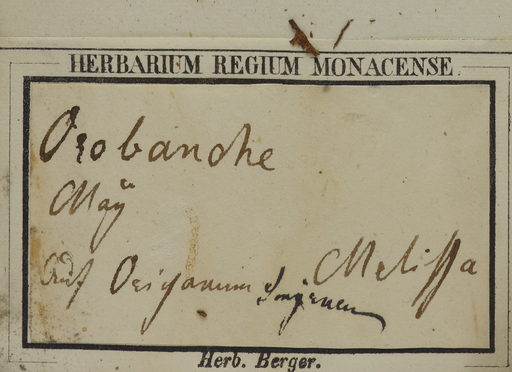 HERBARIUM REGIUM MONACENSE.
Orobanche
Maÿ
Auf Origanum Melissa
Herb. Berger.